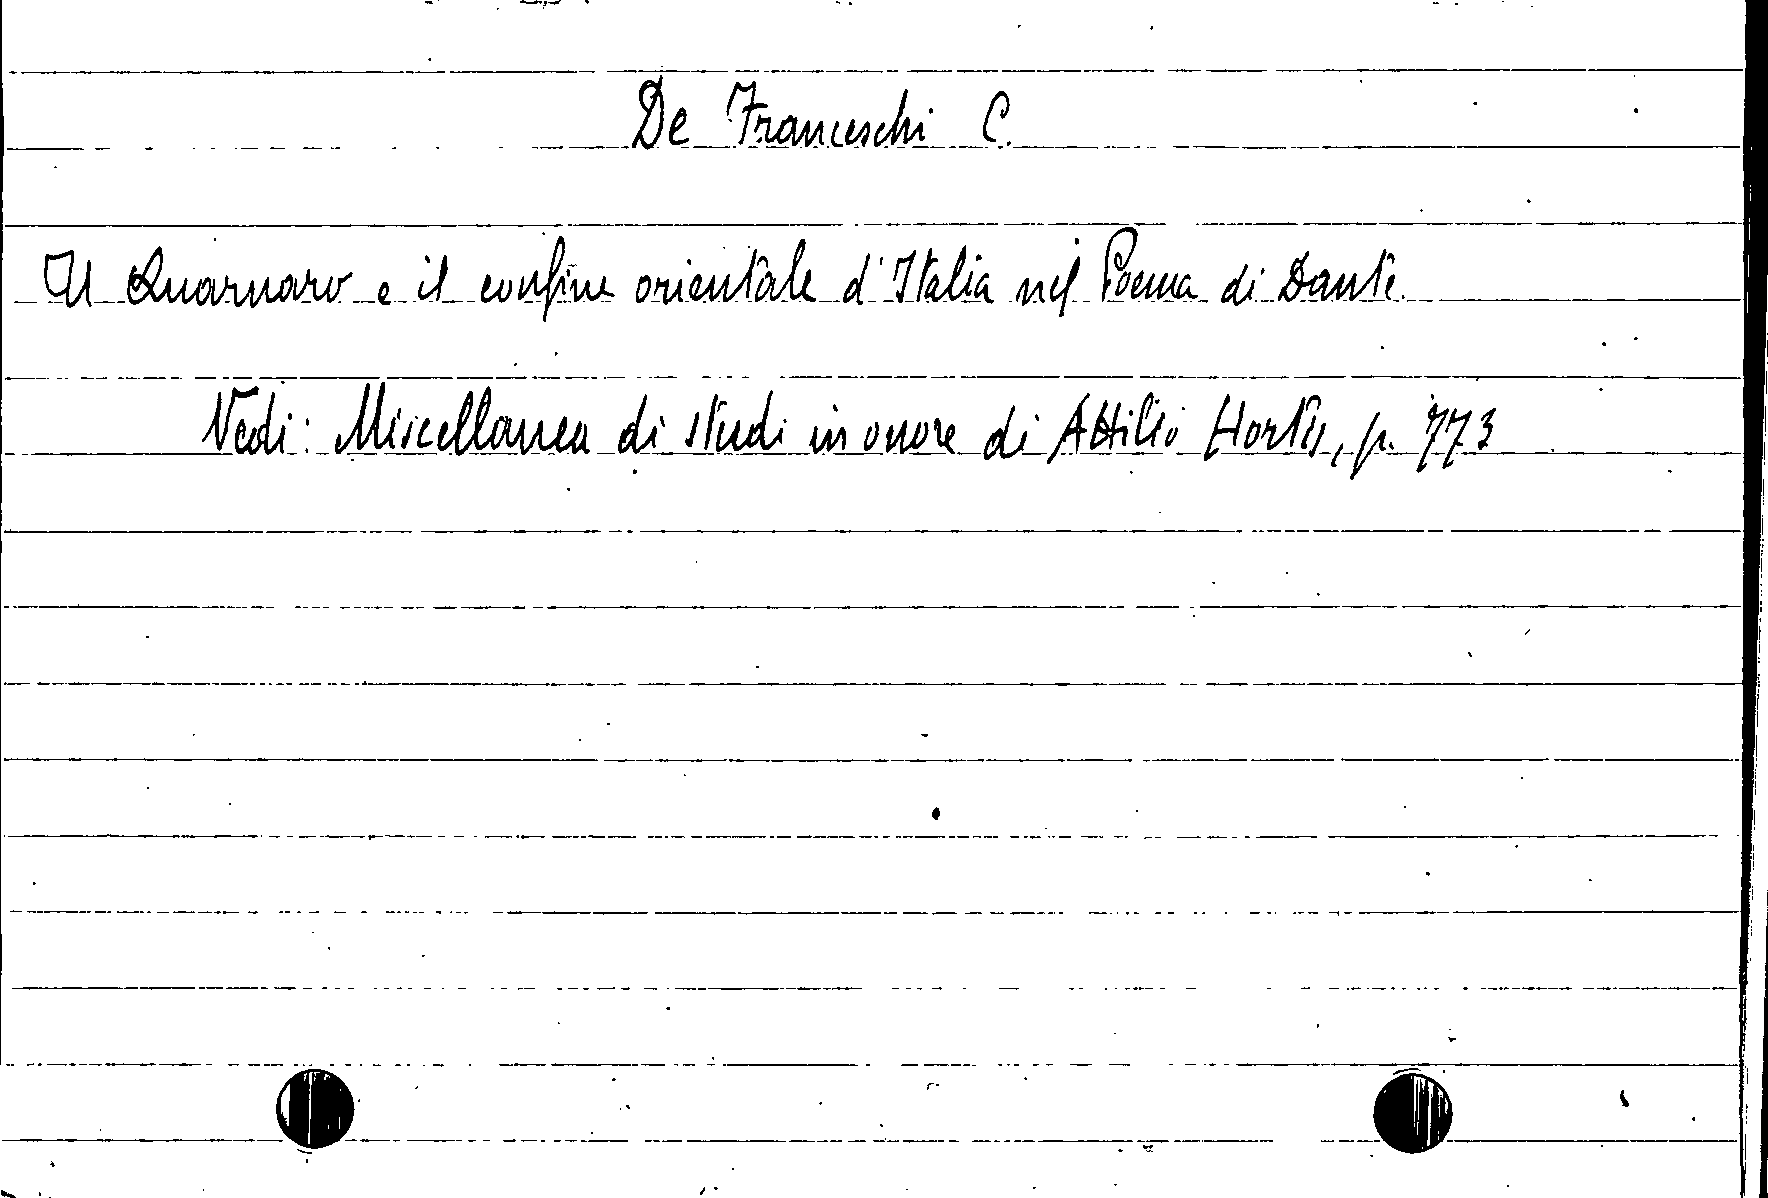 De Franceschi C.
Il Quarnaro e il confine orientale d'Italia nel Poema di Dante.
Vedi: Miscellanea di studi in onore di Attilio Hortis, p. 773